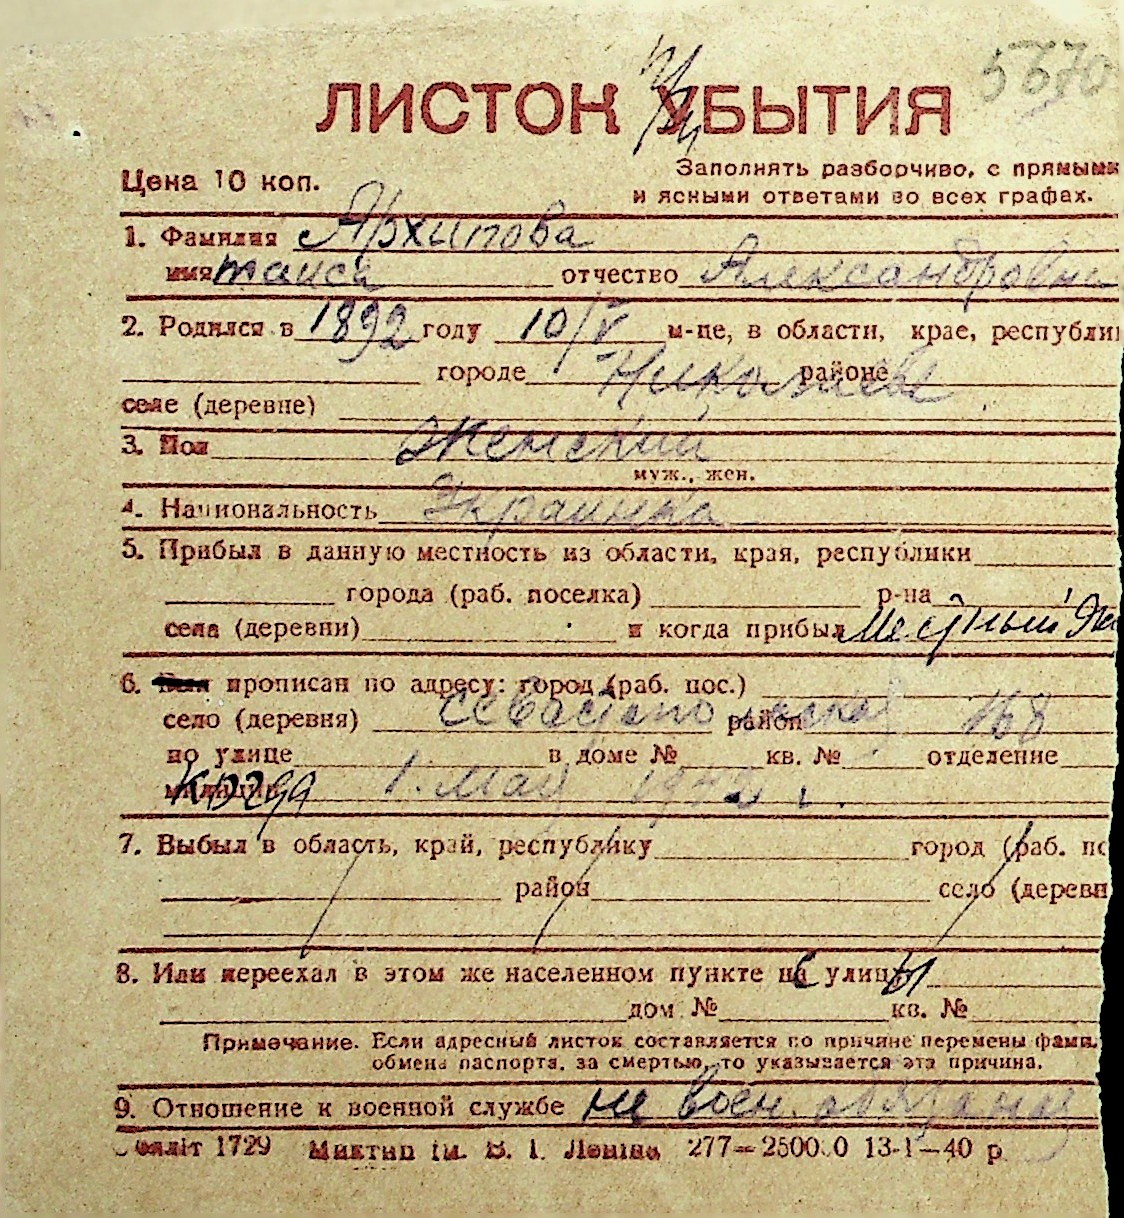 5670
ЛИСТОК УБЫТИЯ
Цена 10 коп.
Заполнять разборчиво, с прямыми
и ясными ответами во всех графах.
1. Фамилия Архипова
имя таиса отчество Александровна
2. Родился в 1892 году 10/V м-це, в области, крае, республи
городе районе Николаев
селе (деревне)
3. Пол Женский
муж., жен.
4. Национальность Украинка
5. Прибыл в данную местность из области, края, республики
города (раб. поселка) р-на
села (деревни) и когда прибыл Местный
6. Был прописан по адресу: город (раб. пос.)
село (деревня) Севастопольская район 168
по улице в доме № кв. № отделение
милиции когда 1. Мая 1942 г.
7. Выбыл в область, край, республику город (раб. по
район село (деревн
8. Или переехал в этом же населенном пункте на улицу
дом № кв. №
Примечание. Если адресный листок составляется по причине перемены фами.
обмена паспорта, за смертью, то указывается эта причина.
9. Отношение к военной службе не воен. обязаная
Облліт 1729 Миктип ім. В. І. Леніна 277—25000 13-1—40 р